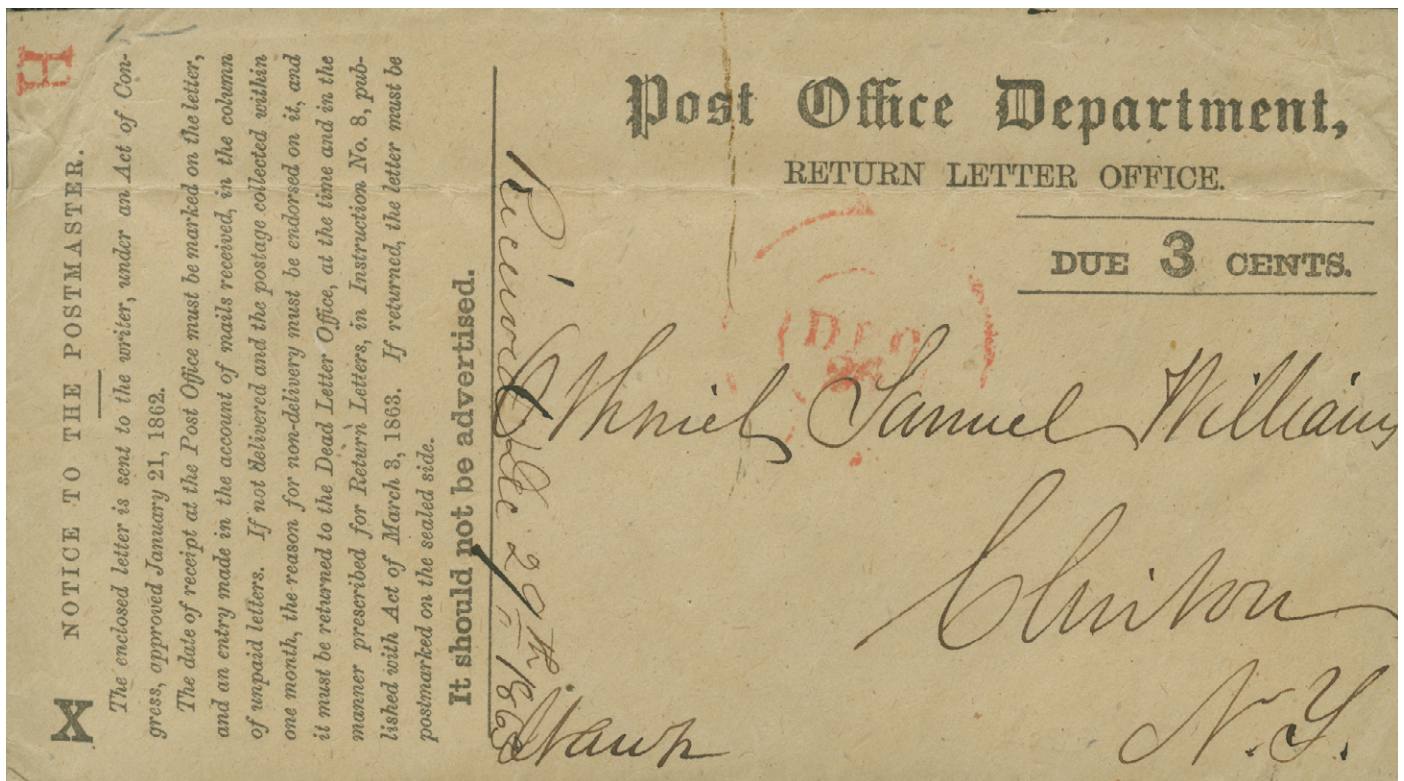 H
X
NOTICE TO THE POSTMASTER.
The enclosed letter is sent to the writer, under an Act of Con-
gress, approved January 21, 1862.
The date of receipt at the Post Office must be marked on the letter,
and an entry made in the account of mails received, in the column
of unpaid letters. If not delivered and the postage collected within
one month, the reason for non-delivery must be endorsed on it, and
it must be returned to the Dead Letter Office, at the time and in the
manner prescribed for Return Letters, in Instruction No. 8, pub-
lished with Act of March 3, 1863. If returned, the letter must be
postmarked on the sealed side.
It should not be advertised.
Received Dec 29th 1863
Post Office Department,
RETURN LETTER OFFICE.
DUE 3 CENTS.
DEC
Othniel Samuel Williams
Clinton
N. Y.